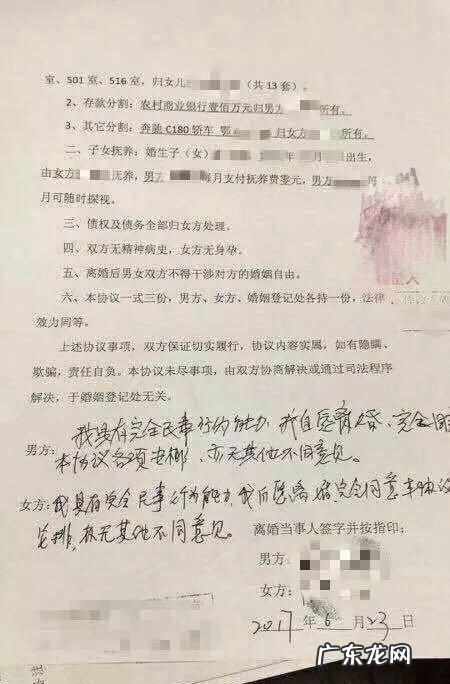 室、501 室、516 室，归女儿（共 13 套）。
2、存款分割：农村商业银行壹佰万元归男方所有。
3、其它分割：奔驰 C180 轿车 鄂归女方所有。
二、子女抚养：婚生子（女）年月出生，
由女方抚养，男方每月支付抚养费零元，男方每
月可随时探视。
三、债权及债务全部归女方处理。
四、双方无精神病史，女方无身孕。
五、离婚后男女双方不得干涉对方的婚姻自由。
六、本协议一式三份，男方、女方、婚姻登记处各持一份，法律
效力同等。
上述协议事项，双方保证切实履行，协议内容实属，如有隐瞒、
欺骗，责任自负。本协议未尽事项，由双方协商解决或通过司法程序
解决，于婚姻登记处无关。
我具有完全民事行为能力，我自愿离婚，完全同
男方：本协议各项安排，亦无其他不同意见。
女方：我具有完全民事行为能力，我自愿离婚完全同意本协议
安排，亦无其他不同意见。
离婚当事人签字并按指印：
男方：
女方：
2017 年 6 月 23 日
广东龙网